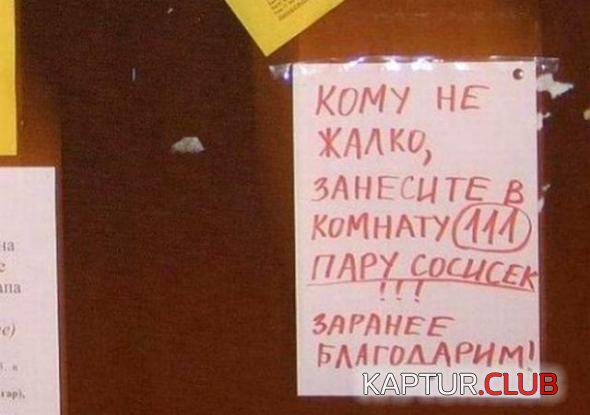 КОМУ НЕ
ЖАЛКО,
ЗАНЕСИТЕ В
КОМНАТУ 111
ПАРУ СОСИСЕК
!!!
ЗАРАНЕЕ
БЛАГОДАРИМ!
KAPTUR.CLUB